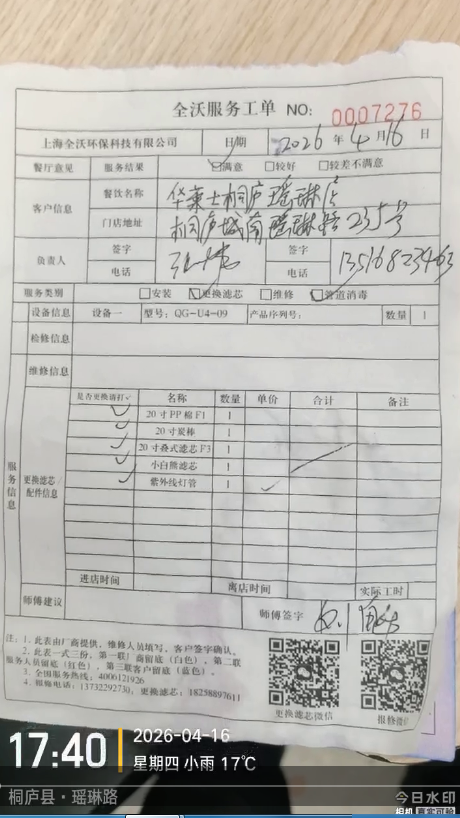 全沃服务工单 NO: 0007276
上海全沃环保科技有限公司 日期 2026 年 4 月 16 日
餐厅意见 服务结果 ☑满意 □较好 □较差不满意
客户信息 餐饮名称 华莱士桐庐瑶琳店
门店地址 桐庐城南瑶琳路235号
负责人 签字 签字
电话 电话 13516823463
服务类别 □安装 ☑更换滤芯 □维修 ☑管道消毒
设备信息 设备一 型号: QG-U4-09 产品序列号: 数量 1
检修信息
维修信息
服务信息
更换滤芯/配件信息
是否更换请打✓ 名称 数量 单价 合计 备注
✓ 20寸PP棉F1 1
✓ 20寸炭棒 1
✓ 20寸叠式滤芯F3 1
✓ 小白熊滤芯 1
✓ 紫外线灯管 1 ✓
进店时间 离店时间 实际工时
师傅建议 师傅签字
注: 1. 此表由厂商提供, 维修人员填写、客户签字确认。
2. 此表一式三份, 第一联厂商留底(白色), 第二联
服务人员留底(红色), 第三联客户留底(蓝色)。
3. 全国服务热线: 4000121926
4. 报修电话: 13732292730, 更换滤芯: 18258897611
更换滤芯微信 报修微信
17:40
2026-04-16
星期四 小雨 17℃
桐庐县·瑶琳路
今日水印
相机 真实可验